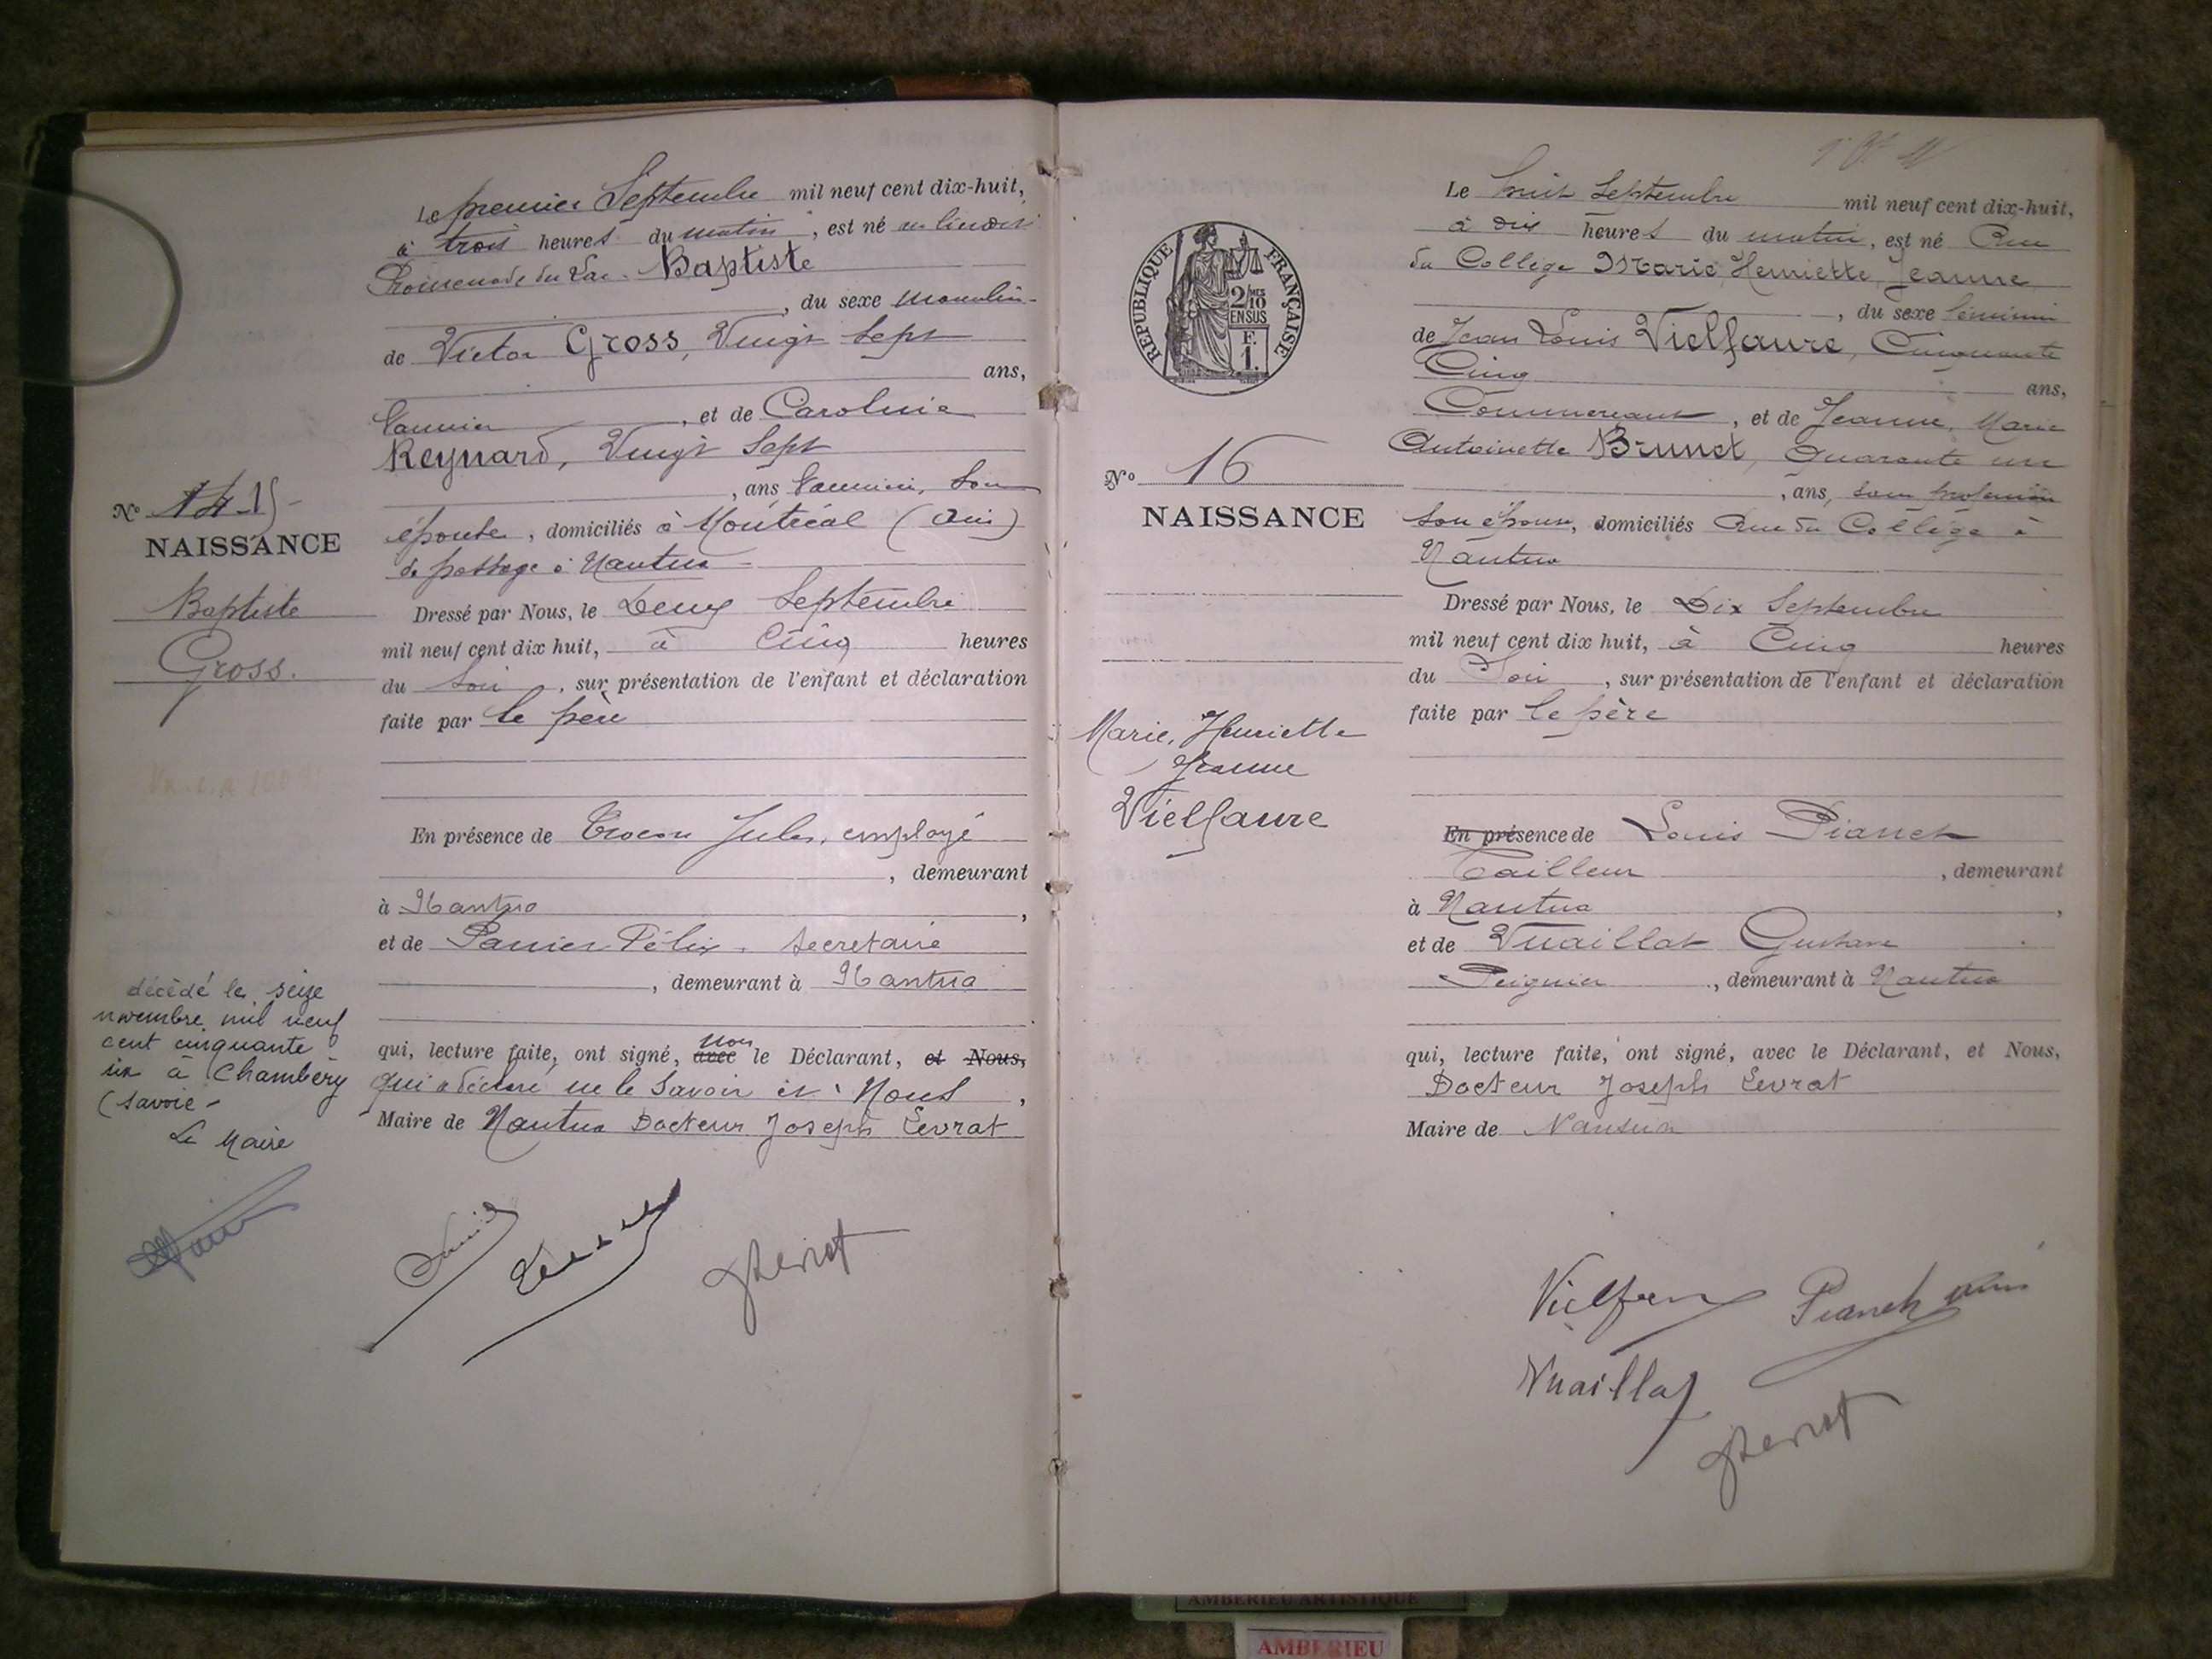 Le premier Septembre mil neuf cent dix-huit,
à trois heures du matin, est né
Promenade du Lac Baptiste
, du sexe masculin
de Victor Gross, Vingt Sept
ans,
Vannier, et de Carolinie
Reynard, Vingt Sept
, ans Vannière, Son
épouse, domiciliés à Montréal (Ain)
de passage à Nantua
Nº 14 15
NAISSANCE
Baptiste
Gross.
Dressé par Nous, le Deux Septembre
mil neuf cent dix huit, à Cinq heures
du Soir, sur présentation de l'enfant et déclaration
faite par le père
En présence de Jules, employé
, demeurant
à Nantua,
et de Panier Félix, Secrétaire
, demeurant à Nantua
qui, lecture faite, ont signé, avec non le Déclarant, et Nous,
qui a déclaré ne le Savoir et Nous,
Maire de Nantua Docteur Joseph Levrat
décédé le seize
novembre mil neuf
cent cinquante
six à Chambéry
(Savoie -
Le Maire
RÉPUBLIQUE FRANÇAISE
2/10 MES
EN SUS
F.
1.
Nº 16
NAISSANCE
Marie, Henriette
Jeanne
Vielfaure
Le huit Septembre mil neuf cent dix-huit,
à dix heures du matin, est né Rue
du Collège Marie, Henriette, Jeanne
, du sexe féminin
de Jean Louis Vielfaure, Cinquante
Cinq ans,
Commerçant, et de Jeanne, Marie
Antoinette Brunet, Quarante un
, ans, sans profession
Son épouse, domiciliés Rue du Collège à
Nantua
Dressé par Nous, le Dix Septembre
mil neuf cent dix huit, à Cinq heures
du Soir, sur présentation de l'enfant et déclaration
faite par le père
En présence de Louis Pianch
Tailleur, demeurant
à Nantua,
et de Vuaillat Gustave
Peignier, demeurant à Nantua
qui, lecture faite, ont signé, avec le Déclarant, et Nous,
Docteur Joseph Levrat
Maire de Nantua
Vielfaure Pianch
Vuaillat
JLevrat
AMBERIEU ARTISTIQUE
AMBERIEU